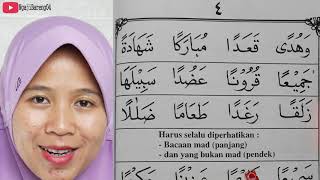 NgajiBareng04
٤
وَهُدًى قَعَدًا مُبَارَكًا شَهَادَةً
جَمِيْعًا قُرُوْنًا عَضُدًا سَبِيْلَهَا
زَلَقًا رَغَدًا طَعَامًا ضَلَلًا
Harus selalu diperhatikan :
- Bacaan mad (panjang)
- dan yang bukan mad (pendek)